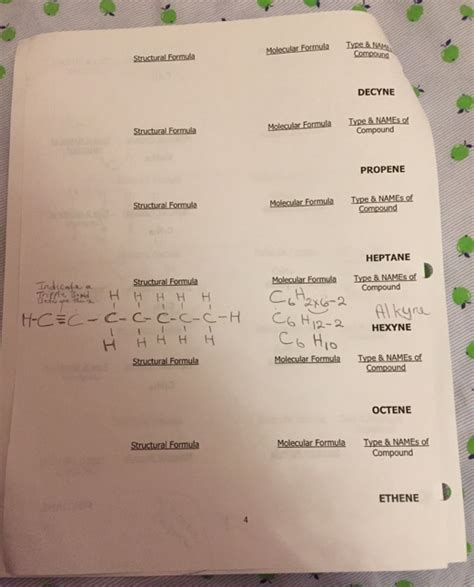 Structural Formula Molecular Formula Type & NAMEs
Compound
DECYNE
Structural Formula Molecular Formula Type & NAMEs of
Compound
PROPENE
Structural Formula Molecular Formula Type & NAMEs of
Compound
HEPTANE
Structural Formula Molecular Formula Type & NAMEs of
Compound
Indicate a
Tripple bond
H H H H H
H-C≡C-C-C-C-C-C-H
H H H H H
C6H2x6-2
C6H12-2
C6H10
Alkyne
HEXYNE
Structural Formula Molecular Formula Type & NAMEs of
Compound
OCTENE
Structural Formula Molecular Formula Type & NAMEs of
Compound
ETHENE
4